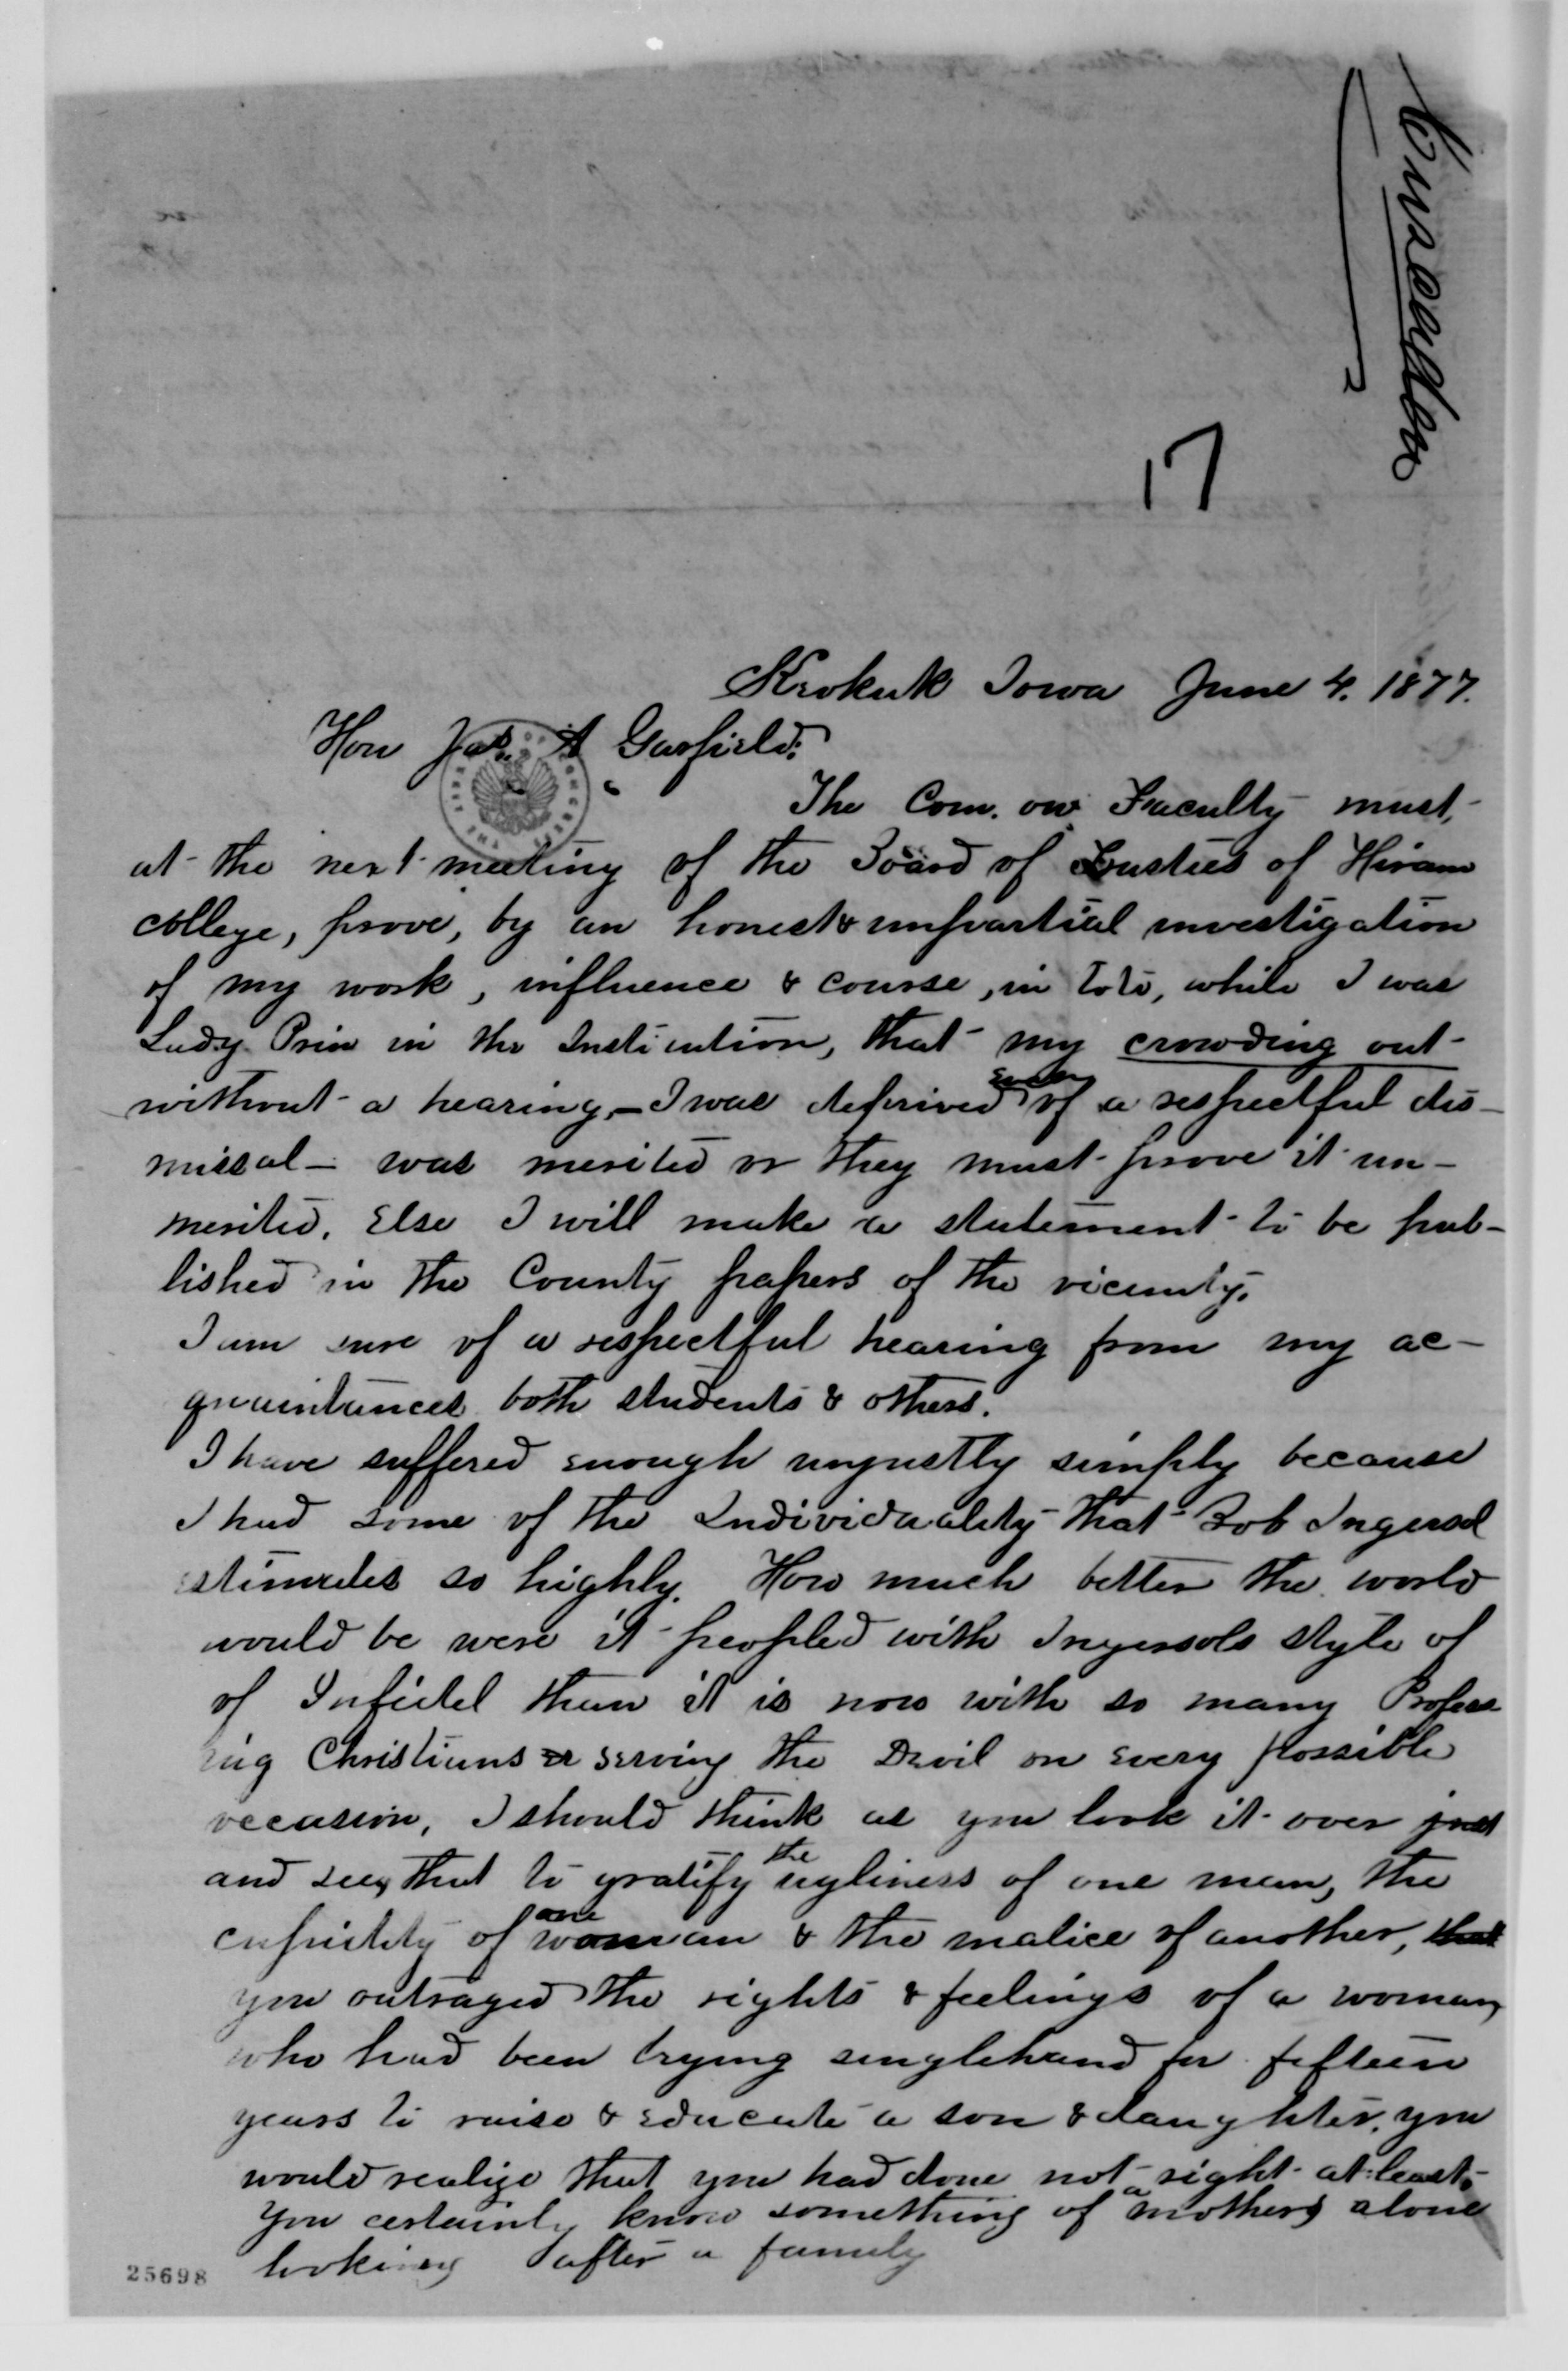 17
Keokuk Iowa June 4. 1877.
Hon Jas. A Garfield.
The Com. on Faculty must,
at the next meeting of the Board of Trustees of Hiram
college, prove, by an honest & impartial investigation
of my work, influence & course, in toto, while I was
Lady Prin in the Institution, that my crowding out
without a hearing,— I was deprived even of a respectful dis-
missal — was merited or they must prove it un-
merited. Else I will make a statement to be pub-
lished in the County papers of the vicinity.
I am sure of a respectful hearing from my ac-
quaintances both students & others.
I have suffered enough unjustly simply because
I had some of the Individuality that Bob Ingersol
estimates so highly. How much better the world
would be were it peopled with Ingersols style of
of Infidel than it is now with so many Profess
ing Christians serving the Devil on every possible
occasion, I should think as you look it over just
and see, that to gratify the ugliness of one man, the
cupidity of one woman & the malice of another, that
you outraged the rights & feelings of a woman,
who had been trying singlehand for fifteen
years to raise & educate a son & daughter, you
would realize that you had done not right at least.
You certainly know something of a mothers alone
looking after a family
25698